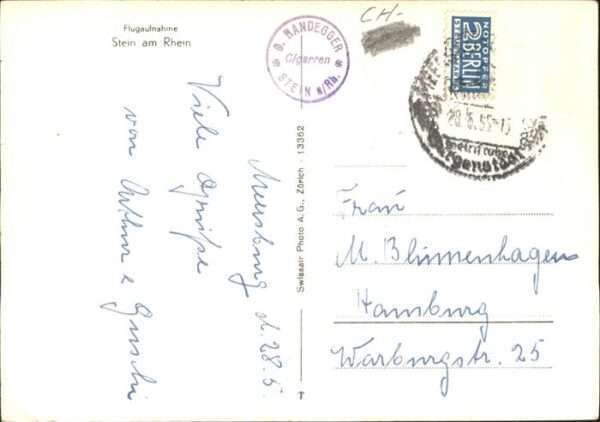 Flugaufnahme
Stein am Rhein
O. MANDEGGER
Cigarren
STEIN a/Rh.
CH-
NOTOPFER
2 BERLIN
STEUERMARKE
28.5.55-15
Meersburg d. 28.5.
Viele Grüße
von Arthur &
Swissair Photo A.G., Zürich - 13362
Frau
M. Blumenhagen
Hamburg
Warburgstr. 25